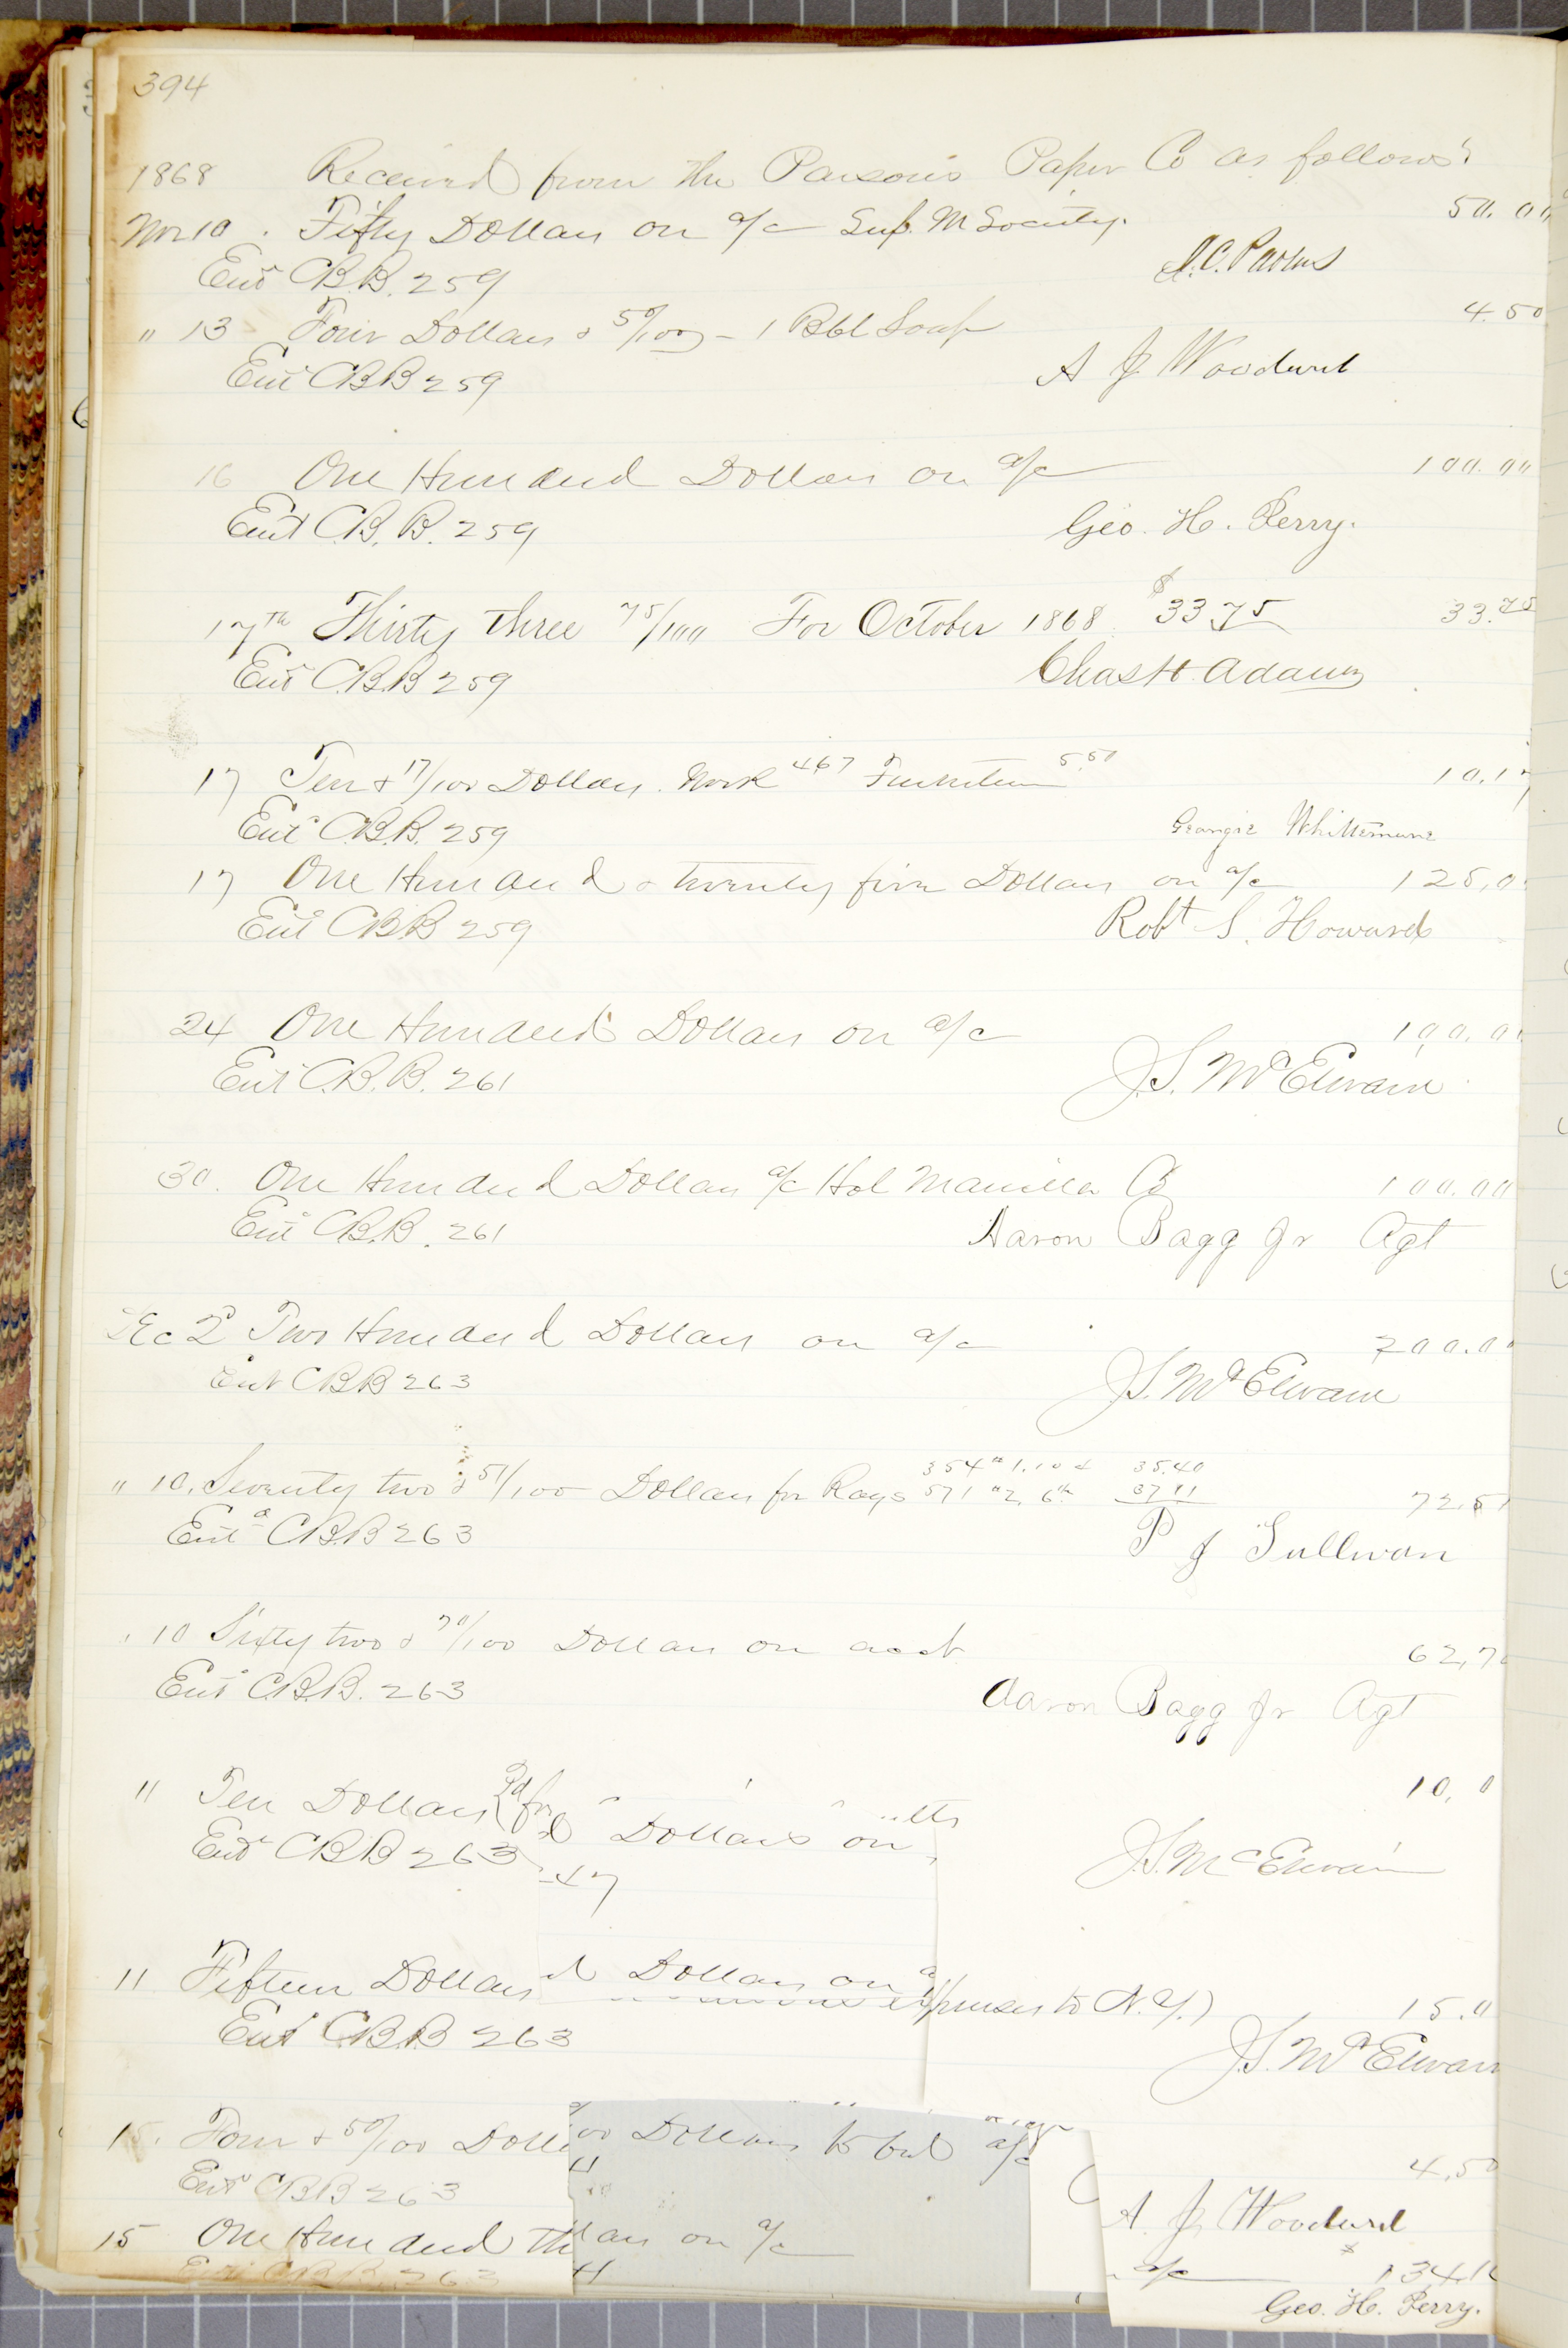 394
1868 Received from the Parsons Paper Co as follows:
Nov 10. Fifty Dollars on a/c Sup. M Society. 50.00
Ent CBB. 259 J.C. Parsons
" 13 Four Dollars & 50/100 - 1 Bbl Soap 4.50
Ent CBB 259 A J Woodward
16 One Hundred Dollars on a/c 100.00
Ent C.B.B. 259 Geo. H. Perry.
17th Thirty three 75/100 For October 1868 $33.75 33.75
Ent C.B.B 259 Chas H. Adams
17 Ten & 17/100 Dollars. Work 4.67 Furniture 5.50 10.17
Ent C.B.B. 259 Georgie Whittemore
17 One Hundred & twenty five Dollars on a/c 125,0
Ent CBB 259 Robt S. Howard
24 One Hundred Dollars on a/c 100.0
Ent C.B.B. 261 J.S. McElwain
30. One Hundred Dollars a/c Hol Manilla Co 100.00
Ent C.B.B. 261 Aaron Bagg Jr Agt
Dec 2 Two Hundred Dollars on a/c 200.0
Ent CBB 263 J.S. McElwain
354 1.10 35.40
" 10. Seventy two & 51/100 Dollars for Rags 571 2, 6 37 11 72,51
Ent CBB 263 P J Sullivan
" 10 Sixty two & 70/100 Dollars on acct 62,70
Ent C.B.B. 263 Aaron Bagg Jr Agt
11 Ten Dollars Pd for 10,0
Dollars on
Ent CBB 263 J.S. McElwain
47
11 Fifteen Dollars d Dollars on a
expenses to N.Y.) 15.0
Ent C.B.B 263 J.S. McElwain
15. Four & 50/100 Doll 00 Dollars to bal a/c 4,50
Ent CBB 263 A. J. Woodward
15 One Hundred Th lars on a/c a/c 134,10
Ent CBB. 263 Geo. H. Perry.